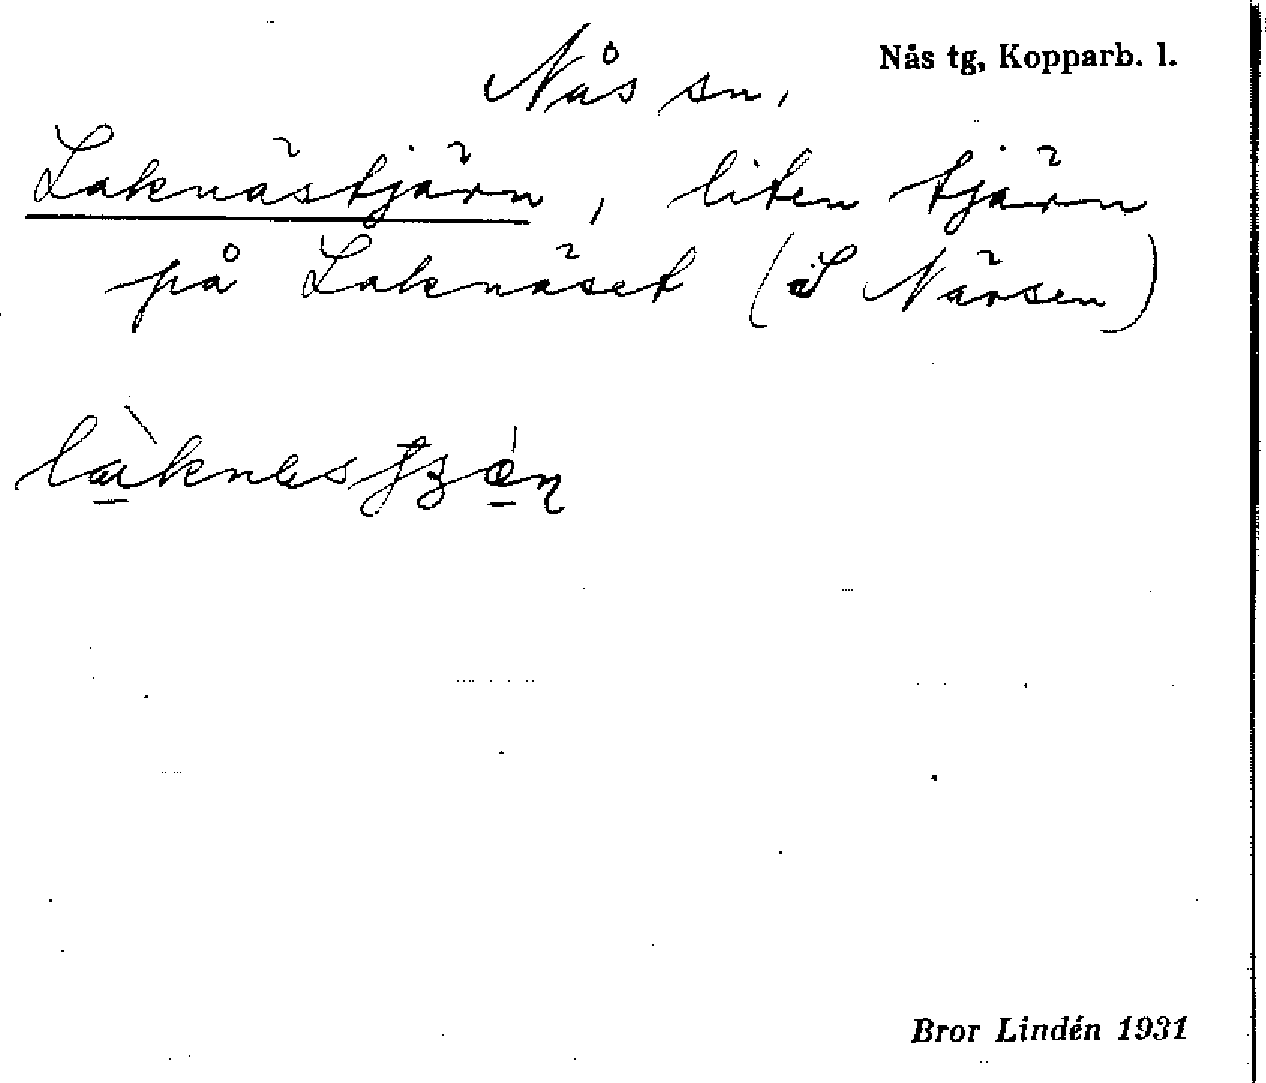 Nås tg, Kopparb. l.
Nås sn,
Laknästjärn, liten tjärn
på Laknäset (i Närsen)
Bror Lindén 1931